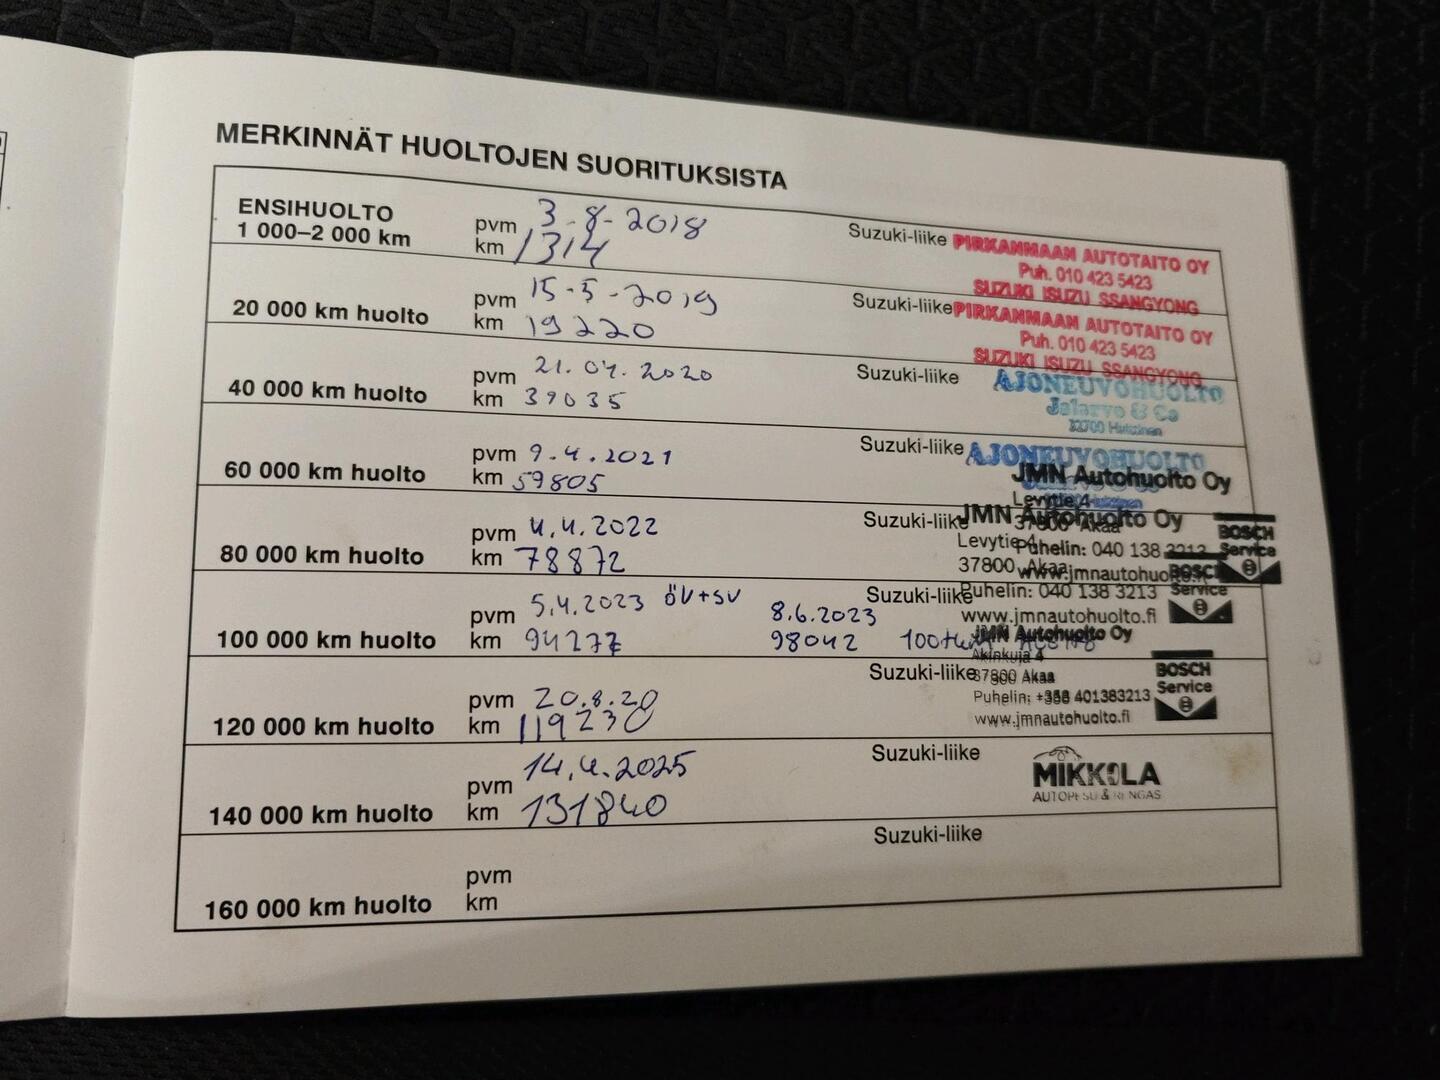 MERKINNÄT HUOLTOJEN SUORITUKSISTA
ENSIHUOLTO
1 000–2 000 km
pvm 3-8-2018
km 1314
Suzuki-liike
PIRKANMAAN AUTOTAITO OY
Puh. 010 423 5423
SUZUKI ISUZU SSANGYONG
20 000 km huolto
pvm 15-5-2019
km 19220
Suzuki-liike
PIRKANMAAN AUTOTAITO OY
Puh. 010 423 5423
SUZUKI ISUZU SSANGYONG
40 000 km huolto
pvm 21.04.2020
km 39035
Suzuki-liike
AJONEUVOHUOLTO
Jalarvo & Co
32700 Huittinen
60 000 km huolto
pvm 9.4.2021
km 59805
Suzuki-liike
AJONEUVOHUOLTO
JMN Autohuolto Oy
Levytie 4
37800 Akaa
Puhelin: 040 138 3213
www.jmnautohuolto.fi
BOSCH
Service
80 000 km huolto
pvm 4.4.2022
km 78872
Suzuki-liike
JMN Autohuolto Oy
Levytie 4
37800 Akaa
Puhelin: 040 138 3213
www.jmnautohuolto.fi
BOSCH
Service
100 000 km huolto
pvm 5.4.2023 ÖV+SV 8.6.2023
km 94277 98042
Suzuki-liike
JMN Autohuolto Oy
Akinkuja 4
37800 Akaa
Puhelin: +358 401383213
www.jmnautohuolto.fi
BOSCH
Service
120 000 km huolto
pvm 20.8.20
km 119230
Suzuki-liike
140 000 km huolto
pvm 14.4.2025
km 131840
Suzuki-liike
MIKKOLA
AUTOPESU & RENGAS
160 000 km huolto
pvm
km
Suzuki-liike